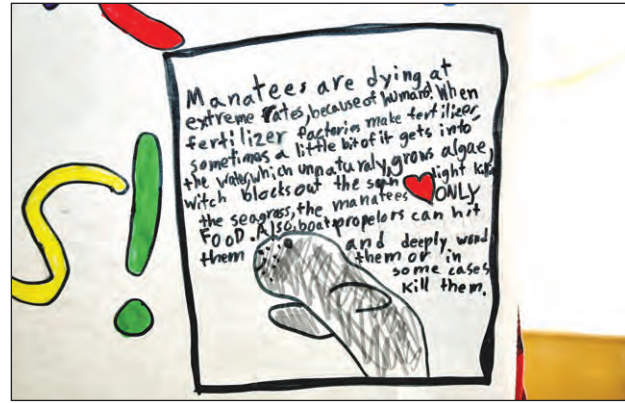 S!
Manatees are dying at
extreme rates, because of humans! When
fertilizer factories make fertilizer,
sometimes a little bit of it gets into
the water, which unnaturaly, grows algae,
witch blocks out the sun light kills
the seagrass, the manatees ONLY
FOOD. Also, boat propelors can hit
them and deeply wond
them or in
some cases
kill them.